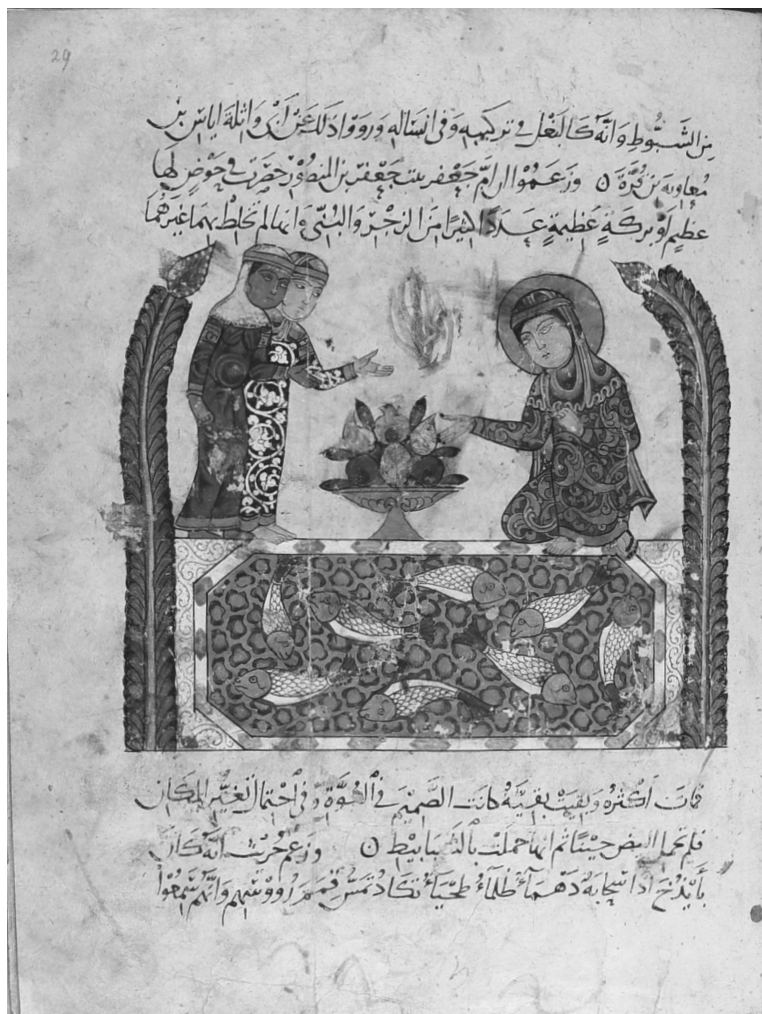 29
من الشَّبُّوطِ وَانَّهُ كَالبَغْلِ فى تركيبهِ وَفى انسَالهِ وَرَوَوْا ذَلكَ عَنْ اَبى وَاثلةَ ايَاسِ بنِ
مُعَاويَةَ بنِ قُرَّةَ ٥ وَزَعَمُوْا ان اُمَّ جَعْفر بنت جَعْفر بن المنصُوْر حَصَرَت فى حَوْضٍ لهَا
عظيمٍ اَوْ بركَةٍ عَظيمةٍ عَدَدًا كثيرًا منَ الزجْرِ وَالبُنِّى وَانها لم تخلطْ بهمَا غيرَهُمَا
فمات اكْثرُهُ وَبقيَتْ بقيّةٌ كانت الصَّميْمَ فى القُوَّةِ وَفى احْتِمَالِ تغيُّرِ المكَانِ
فلم تحمل البيضَ حِيْنًا ثم انهَا حَملتْ بالشبَابيْط ٥ وَزعَم حُرَيْث انَّهُ كَانَ
بأَيْذَجَ اذا سَحَابةٌ دَهْمَآءُ طَخْيَآءُ تكادُ تمَسُّ قمَمَ رُؤُوْسهِم وَانَّهُم سَمِعُوْا